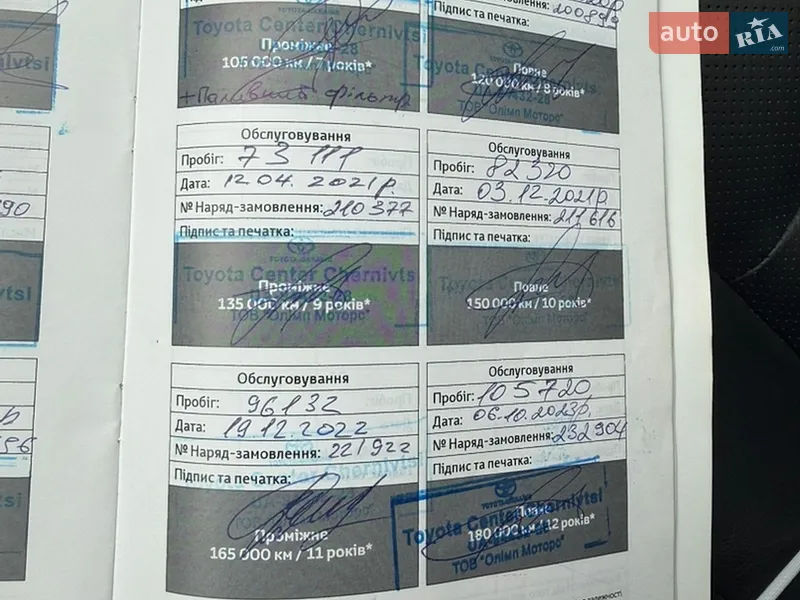 auto RIA .com
Підпис та печатка:
200899
Toyota Center Chernivtsi
Проміжне
105 000 км / 7 років*
+ Паливний фільтр
Toyota Center Chernivtsi
Повне
120 000 км / 8 років*
ТОВ "Олімп Моторс"
Обслуговування
Пробіг: 73 111
Дата: 12.04.2021р.
№ Наряд-замовлення: 210377
Підпис та печатка:
Toyota Center Chernivtsi
Проміжне
135 000 км / 9 років*
ТОВ "Олімп Моторс"
Обслуговування
Пробіг: 82320
Дата: 03.12.2021р.
№ Наряд-замовлення: 211616
Підпис та печатка:
Повне
150 000 км / 10 років*
ТОВ "Олімп Моторс"
Обслуговування
Пробіг: 96132
Дата: 19.12.2022
№ Наряд-замовлення: 221922
Підпис та печатка:
Проміжне
165 000 км / 11 років*
Обслуговування
Пробіг: 105720
Дата: 06.10.2023р.
№ Наряд-замовлення: 232904
Підпис та печатка:
Toyota Center Chernivtsi
Повне
180 000 км / 12 років*
ТОВ "Олімп Моторс"